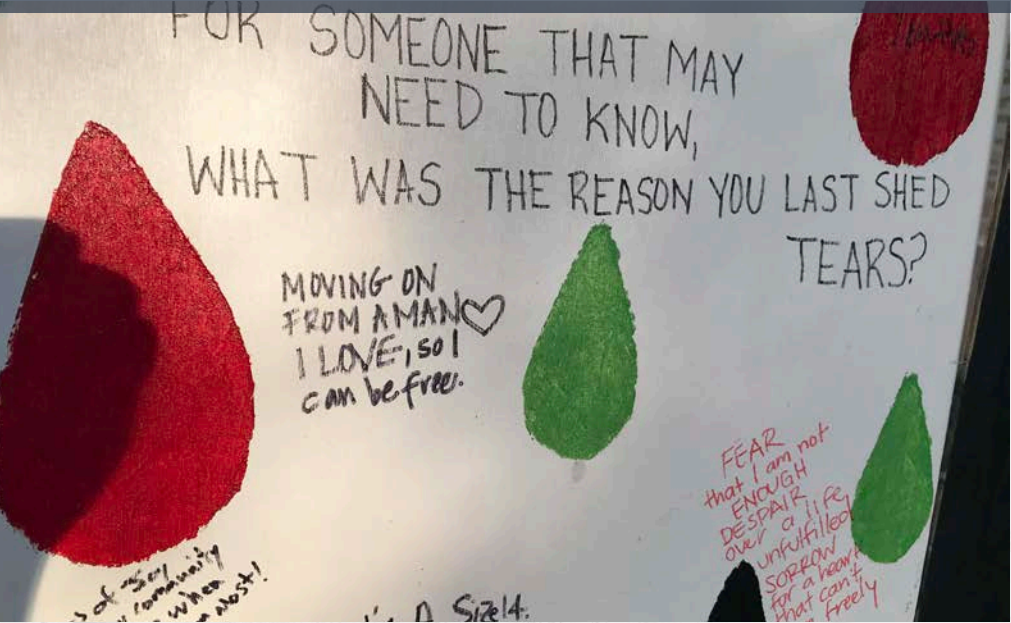 FOR SOMEONE THAT MAY
NEED TO KNOW,
WHAT WAS THE REASON YOU LAST SHED
TEARS?
MOVING ON
FROM A MAN
I LOVE, so I
can be free.
FEAR
that I am not
ENOUGH
DESPAIR
over a life
unfulfilled
SORROW
for a heart
that can't
freely
of my
community
when
most!
A Size 14.